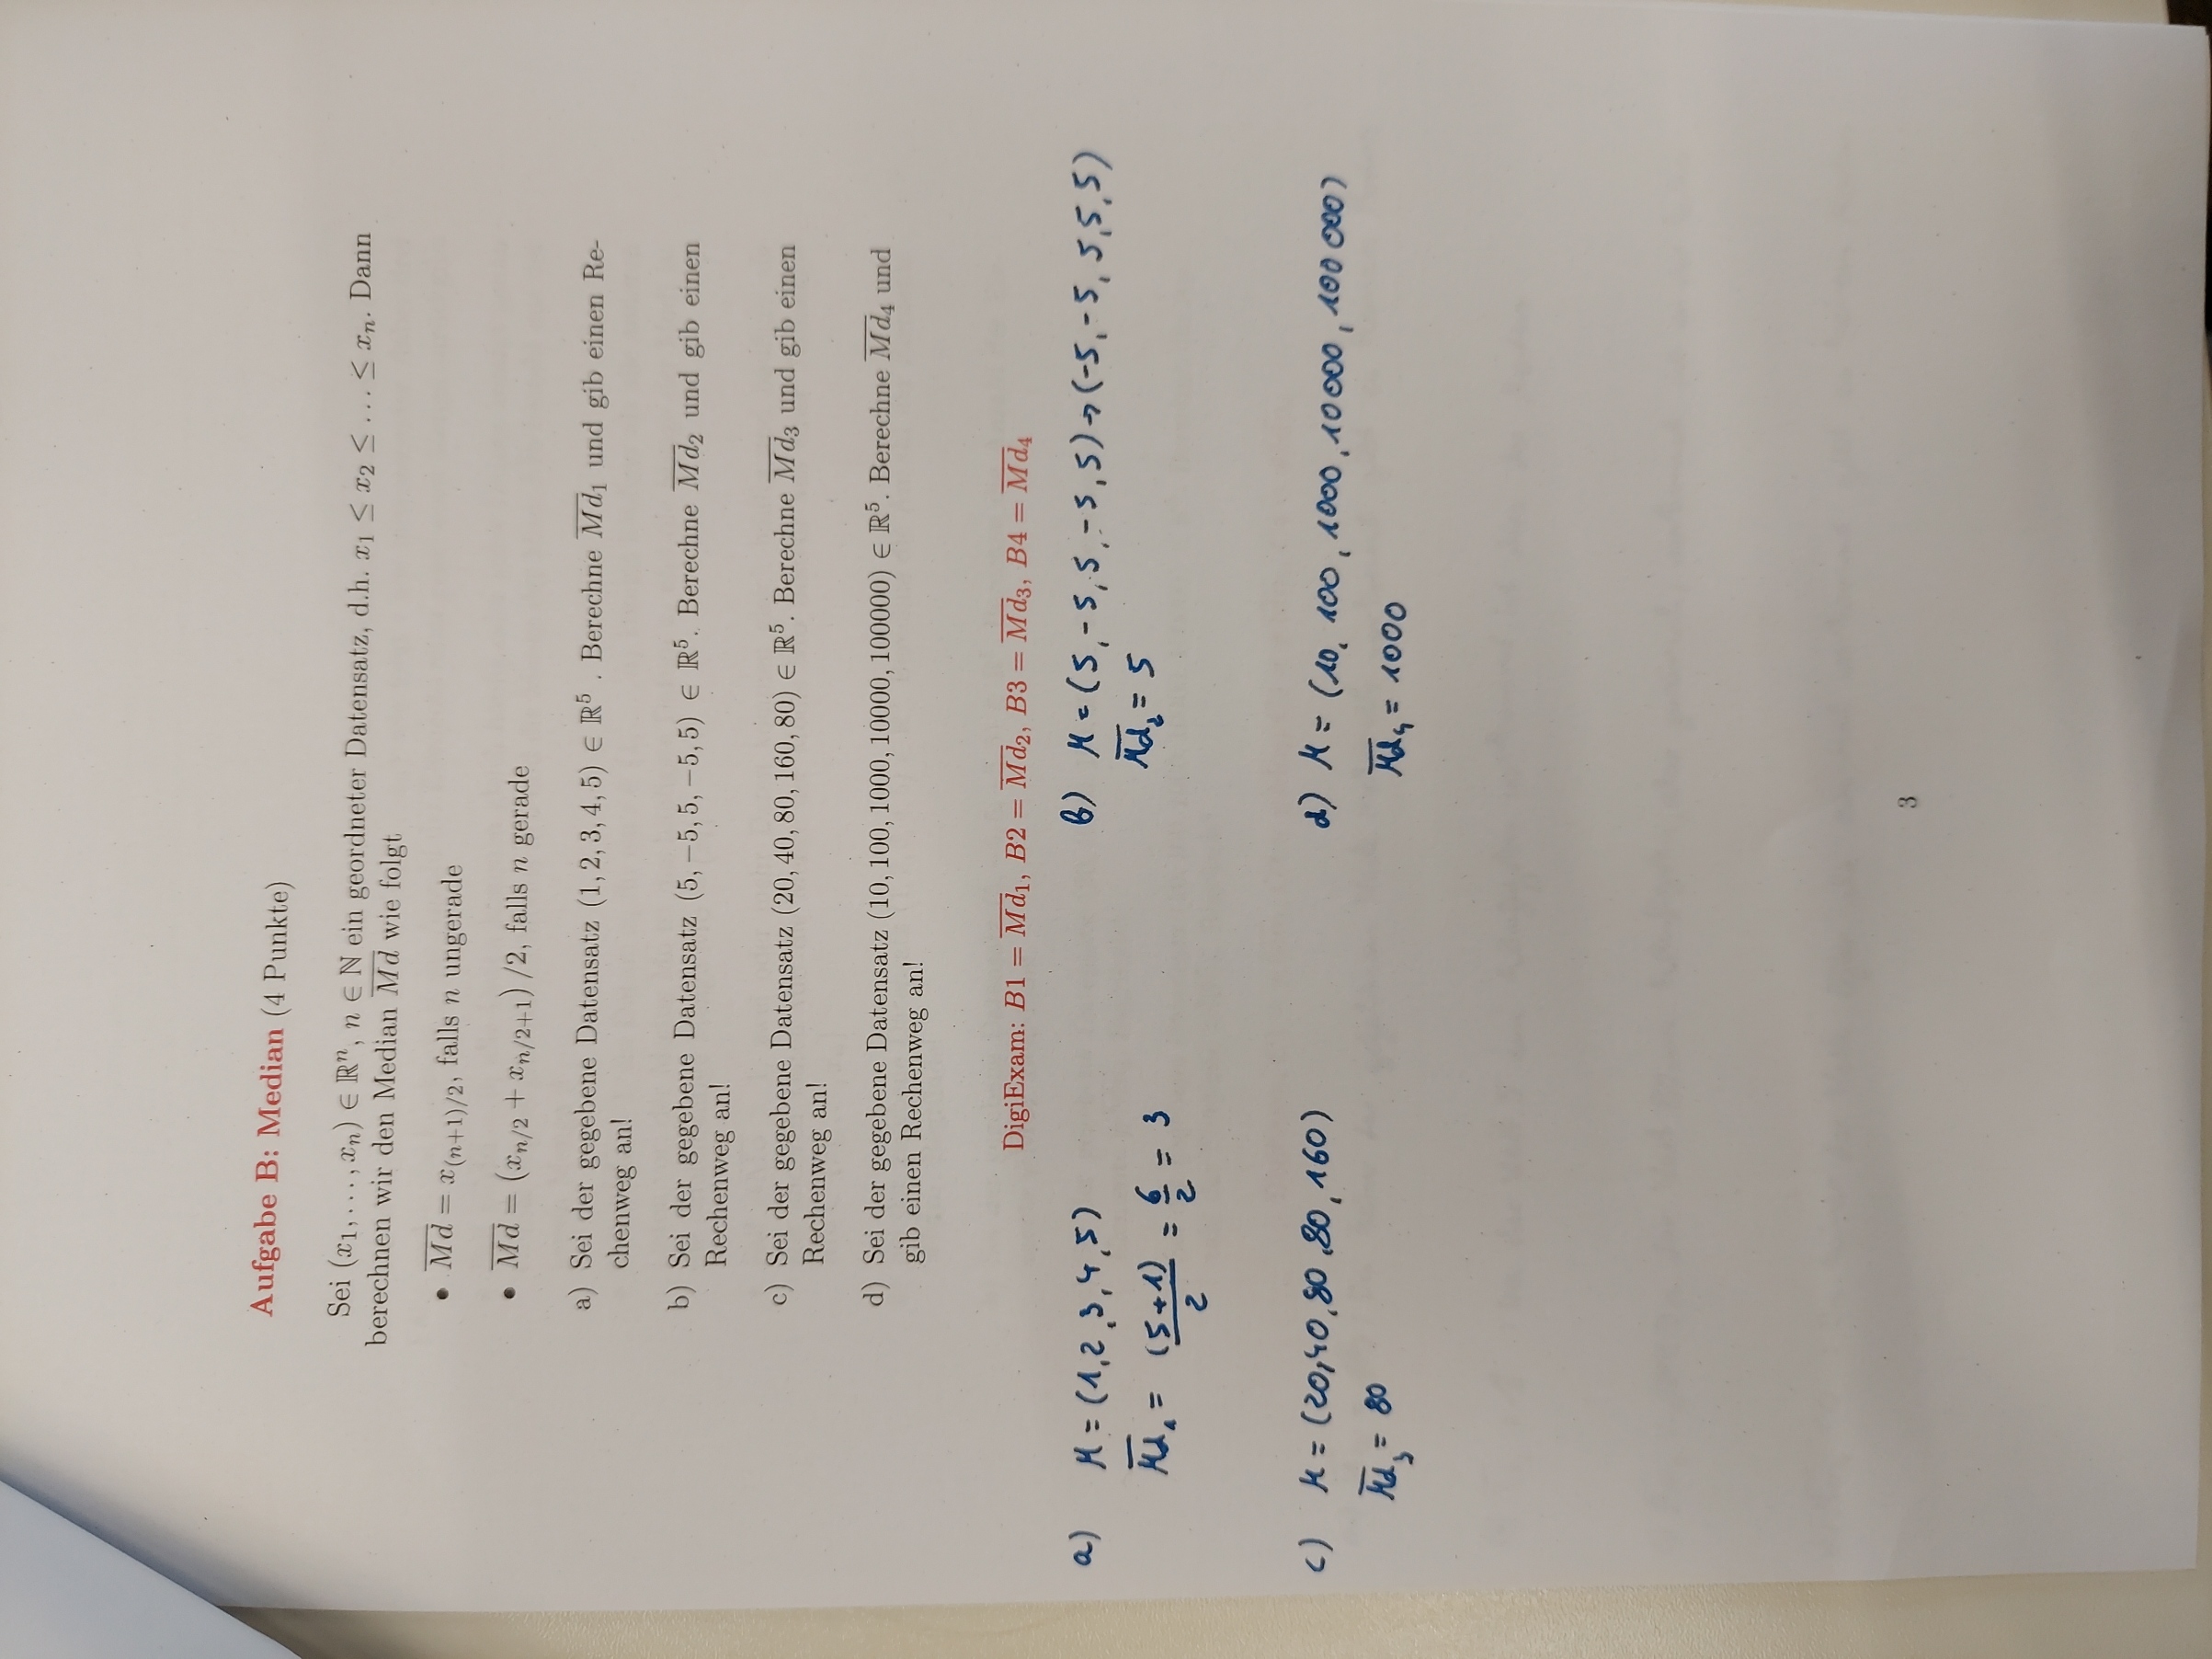 Aufgabe B: Median (4 Punkte)
Sei (x₁, . . . , xₙ) ∈ ℝⁿ, n ∈ ℕ ein geordneter Datensatz, d.h. x₁ ≤ x₂ ≤ . . . ≤ xₙ. Dann
berechnen wir den Median M̅d̅ wie folgt
• M̅d̅ = x₍ₙ₊₁₎/₂, falls n ungerade
• M̅d̅ = (xₙ/₂ + xₙ/₂₊₁) /2, falls n gerade
a) Sei der gegebene Datensatz (1, 2, 3, 4, 5) ∈ ℝ⁵ . Berechne M̅d̅₁ und gib einen Re-
chenweg an!
b) Sei der gegebene Datensatz (5, −5, 5, −5, 5) ∈ ℝ⁵. Berechne M̅d̅₂ und gib einen
Rechenweg an!
c) Sei der gegebene Datensatz (20, 40, 80, 160, 80) ∈ ℝ⁵. Berechne M̅d̅₃ und gib einen
Rechenweg an!
d) Sei der gegebene Datensatz (10, 100, 1000, 10000, 100000) ∈ ℝ⁵. Berechne M̅d̅₄ und
gib einen Rechenweg an!
DigiExam: B1 = M̅d̅₁, B2 = M̅d̅₂, B3 = M̅d̅₃, B4 = M̅d̅₄
a) M = (1,2,3,4,5)
M̅d̅₁ = (5+1)/2 = 6/2 = 3
b) M = (5,-5,5,-5,5) → (-5,-5,5,5,5)
M̅d̅₂ = 5
c) M = (20,40,80,80,160)
M̅d̅₃ = 80
d) M = (10, 100, 1000, 10000, 100 000)
M̅d̅₄ = 1000
3